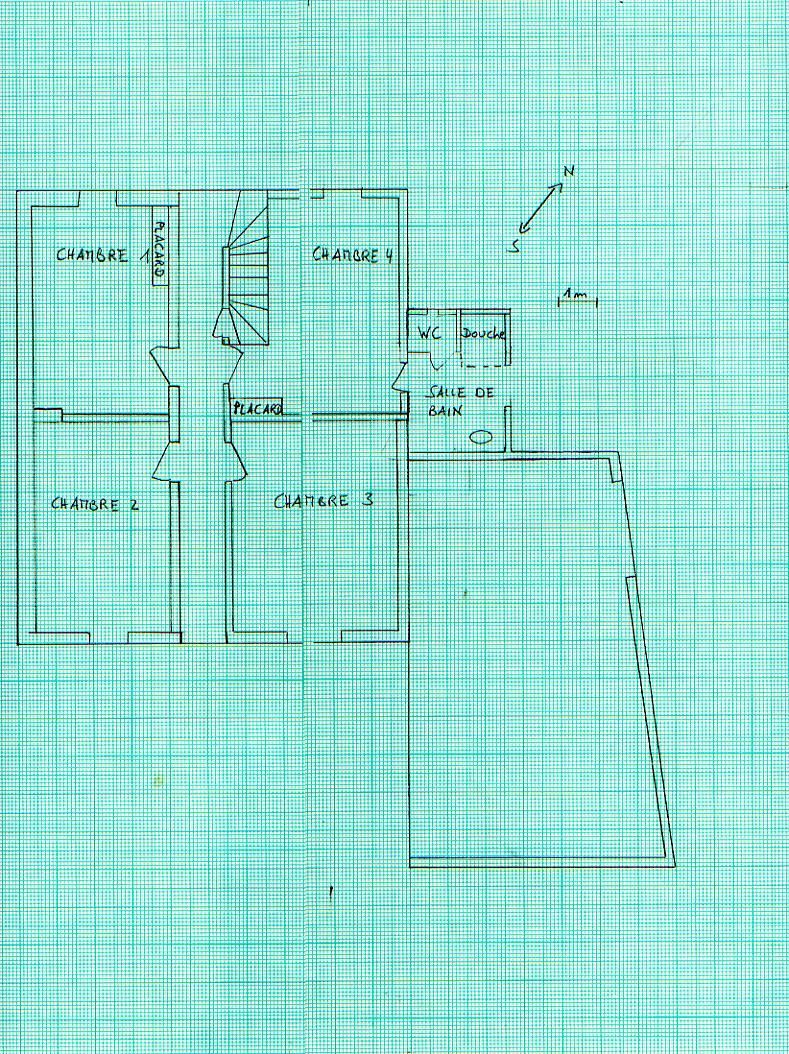 N
S
1m
CHAMBRE 1
PLACARD
CHAMBRE 4
WC
Douche
SALLE DE
BAIN
PLACARD
CHAMBRE 2
CHAMBRE 3